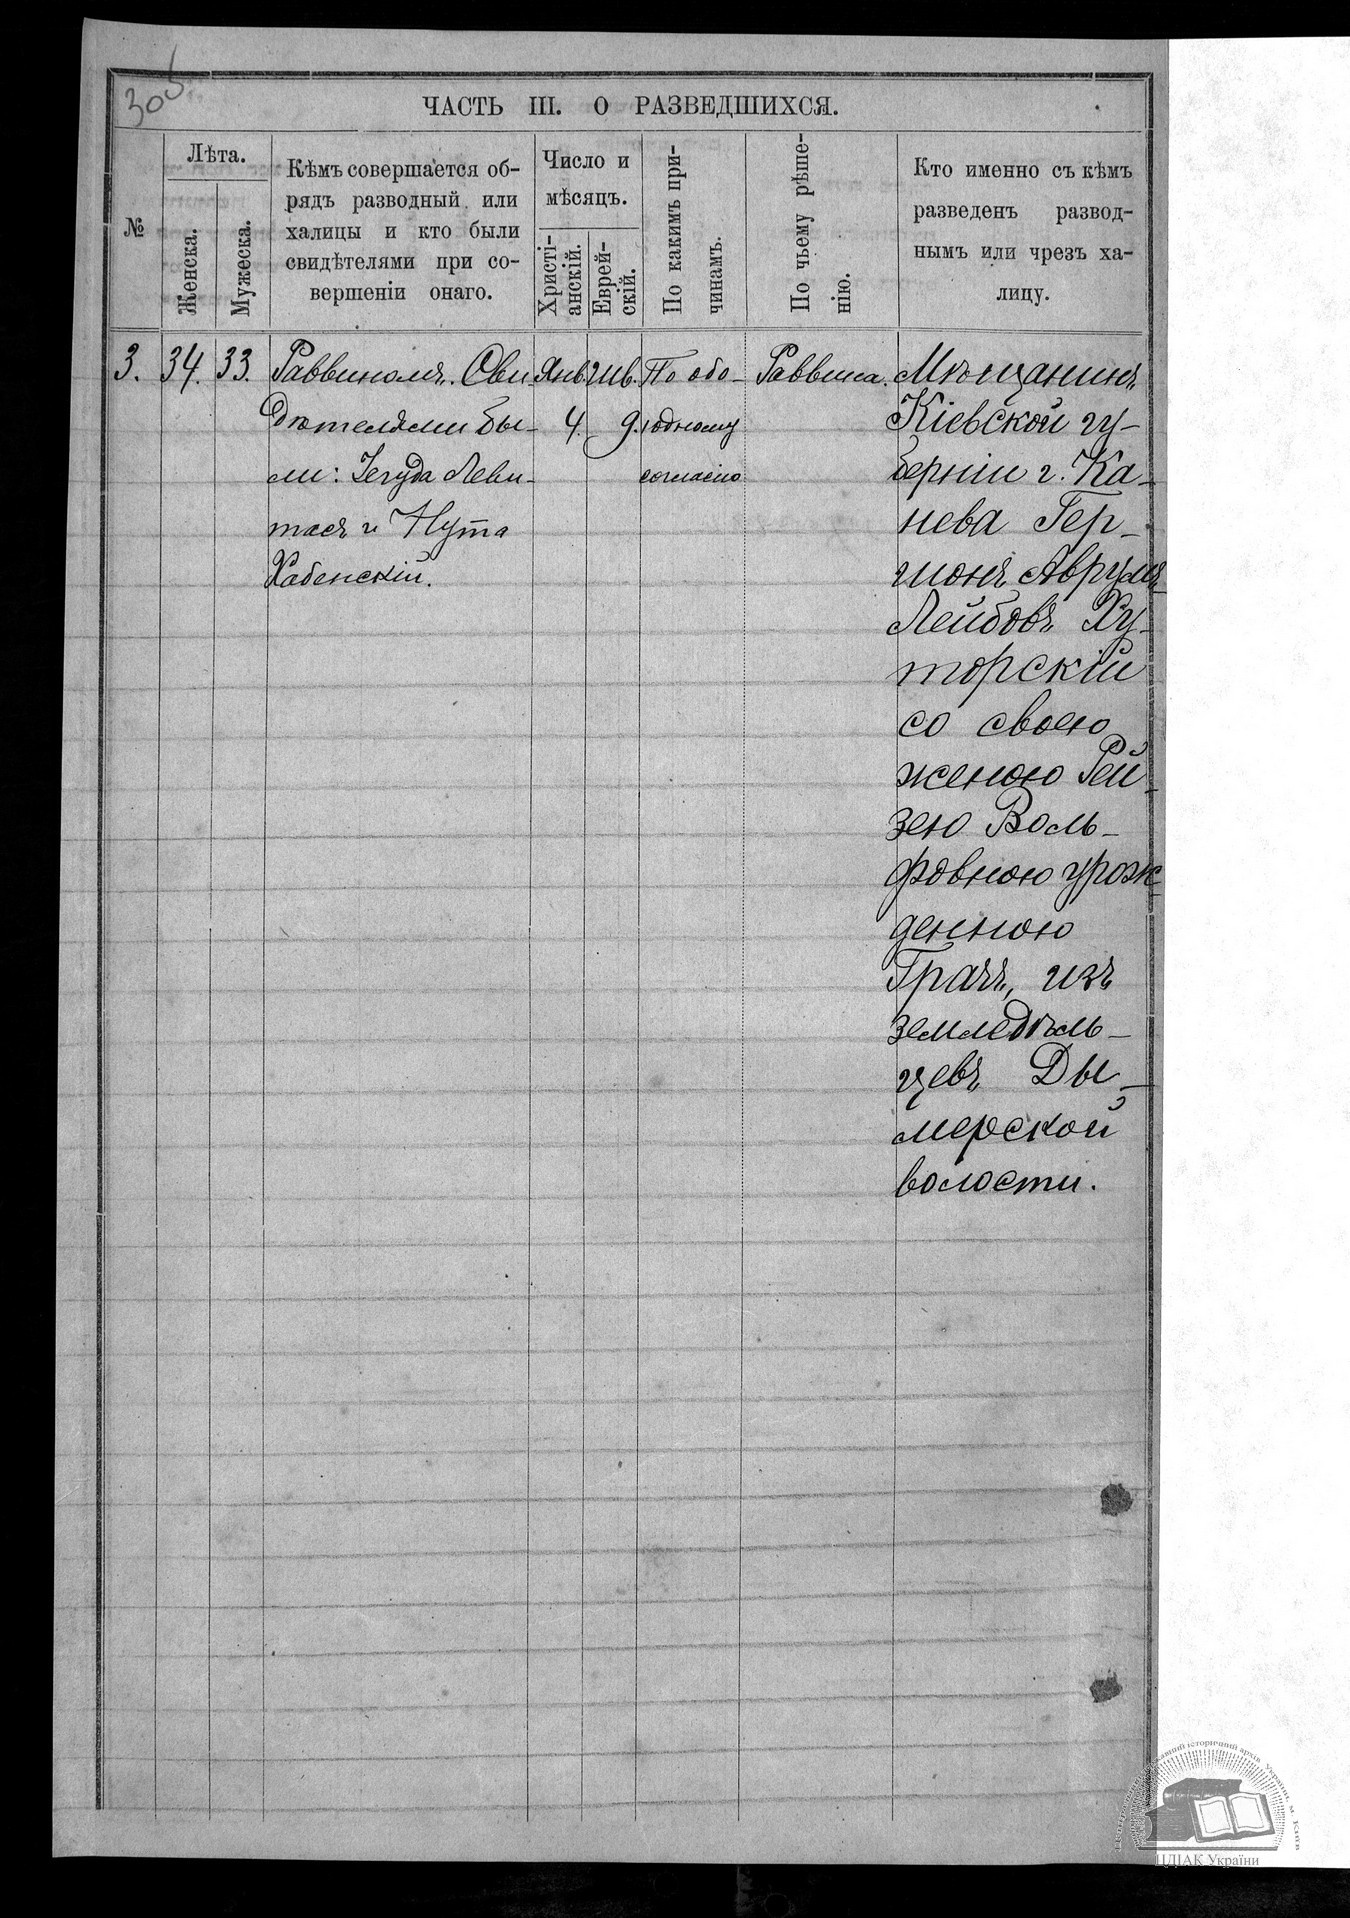 305
ЧАСТЬ III. О РАЗВЕДШИХСЯ.
№
Лѣта.
Женска.
Мужеска.
Кѣмъ совершается об-
рядъ разводный или
халицы и кто были
свидѣтелями при со-
вершеніи онаго.
Число и
мѣсяцъ.
Христі-
анскій.
Еврей-
скій.
По какимъ при-
чинамъ.
По чьему рѣше-
нію.
Кто именно съ кѣмъ
разведенъ развод-
нымъ или чрезъ ха-
лицу.
3.
34.
33.
Раввиномъ. Сви
дѣтелями бы-
ли: Іегуда Леви-
тасъ и Нута
Хабенскій.
Янв.
4.
Шв.
9.
По обо-
юдному
согласію
Раввина.
Мѣщанинъ
Кіевской гу-
берніи г. Ка-
нева Гер-
шонъ Аврумъ-
Лейбовъ Ху-
торскій
со своею
женою Рей-
зею Воль-
фовною урож-
денною
Грачъ, изъ
земледѣль-
цевъ Ды-
мерской
волости.
ЦДІАК України